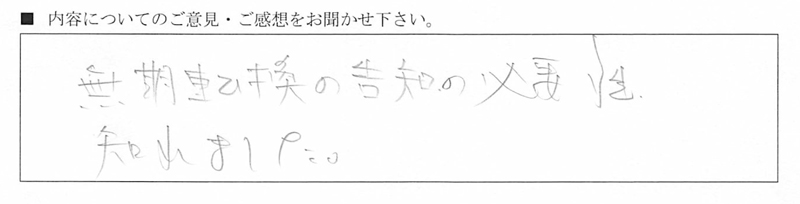 ■ 内容についてのご意見・ご感想をお聞かせ下さい。
無期転換の告知の必要性
知れました。